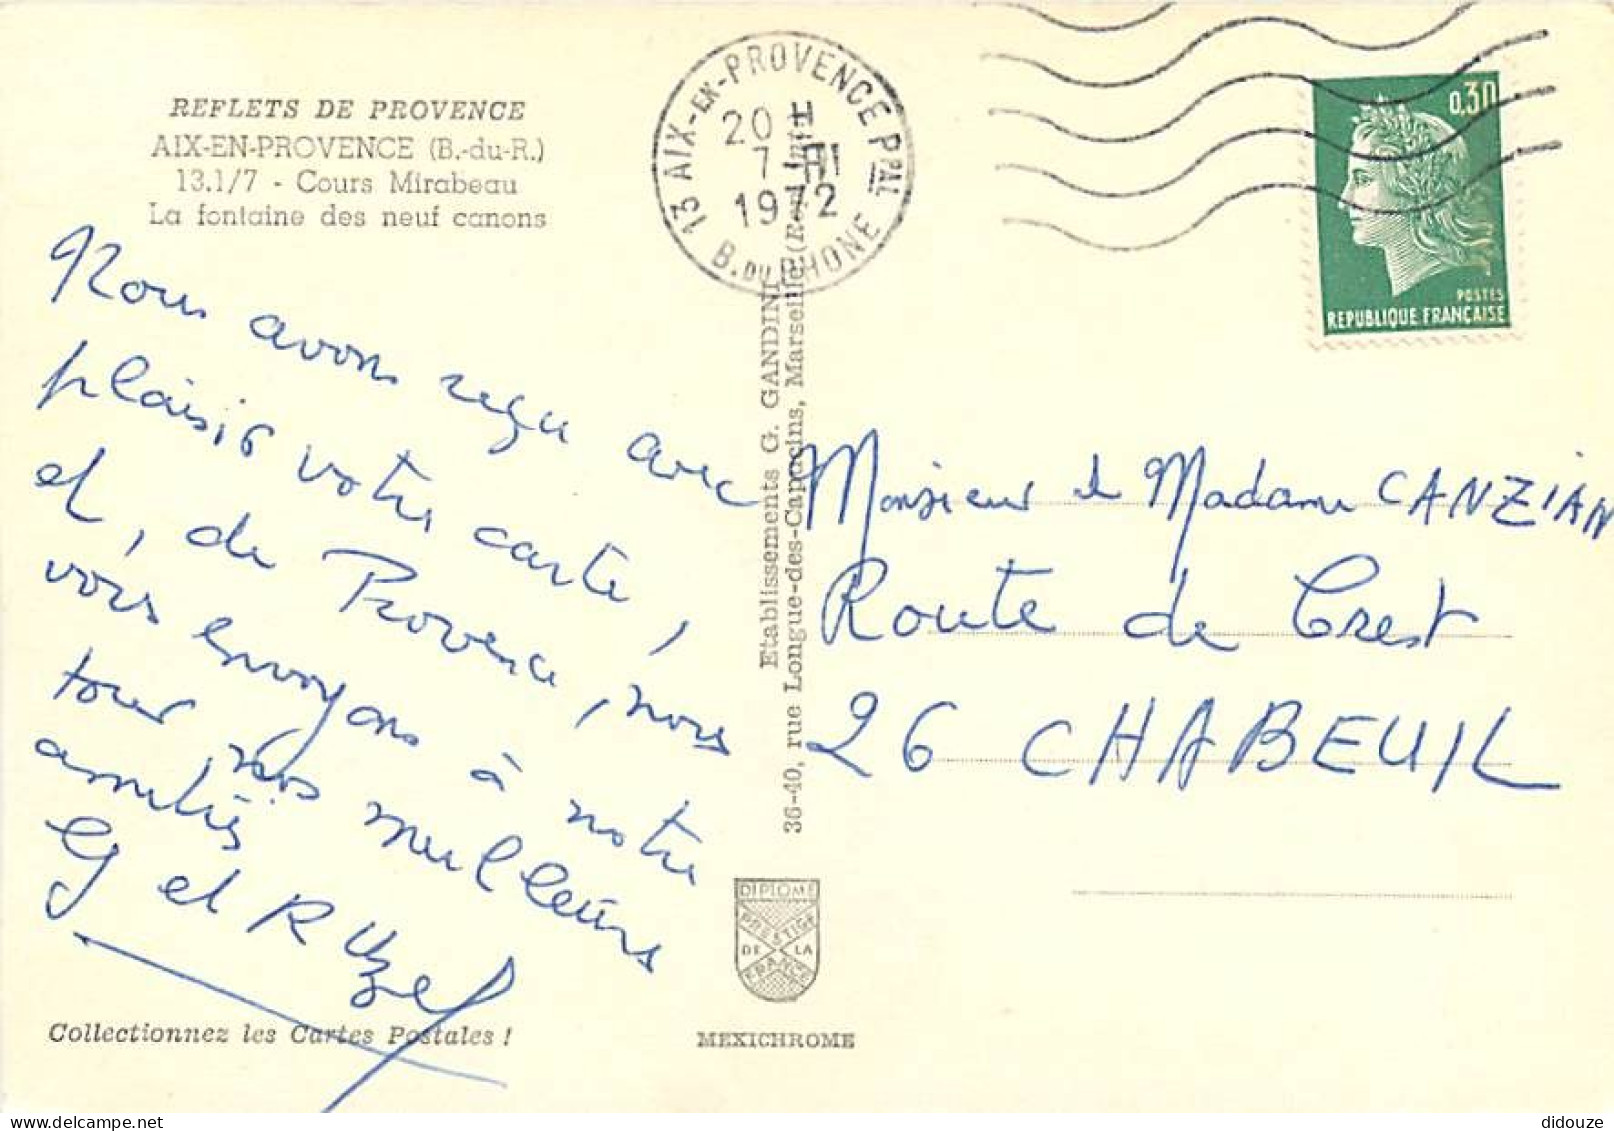 REFLETS DE PROVENCE
AIX-EN-PROVENCE (B.-du-R.)
13.1/7 - Cours Mirabeau
La fontaine des neuf canons
Nous avons reçu avec
plaisir votre carte,
et, de Provence, nous
vous envoyons à notre
tour nos meilleurs
amitiés
G et R Uzel
Collectionnez les Cartes Postales !
13 AIX-EN-PROVENCE PPAL
20 H
7-III
1972
B. DU RHONE
0,30
POSTES
REPUBLIQUE FRANÇAISE
Etablissements G. GANDINI
36-40, rue Longue-des-Capucins, Marseille
Monsieur et Madame CANZIAN
Route de Crest
26 CHABEUIL
DIPLOME
PRESTIGE
DE LA
FRANCE
MEXICHROME
didouze